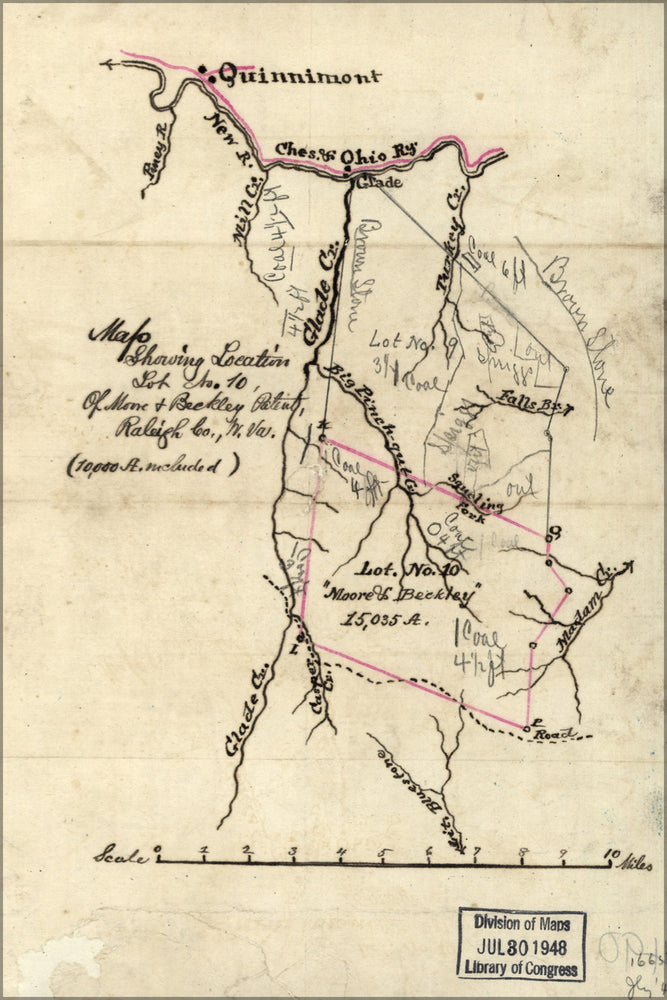 Quinnimont
Piney R.
New R.
Ches. & Ohio Ry
Glade
Mill Cr.
Coal 4½ ft
4½ ft
Glade Cr.
Brown Stone
Turkey Cr.
Coal 6 ft
Brown Stone
Lot No. 9
3/1 Coal
out
Map
Showing Location
Lot No. 10,
Of Moore & Beckley Patent,
Raleigh Co., W. Va.
(10,000 A. included)
Big Punch-gut Cr.
Falls Br.
K
1 Coal
4 ft
Squeling
Fork
out
Coal
4 ft
1 Coal
Q
Lot. No. 10
"Moore & Beckley"
15,035 A.
Madam Cr.
1 Coal
4½ ft
I
Casper
Cr.
Glade Cr.
P
Road
Bluestone
Scale 0 1 2 3 4 5 6 7 8 9 10 Miles
Division of Maps
JUL 30 1948
Library of Congress